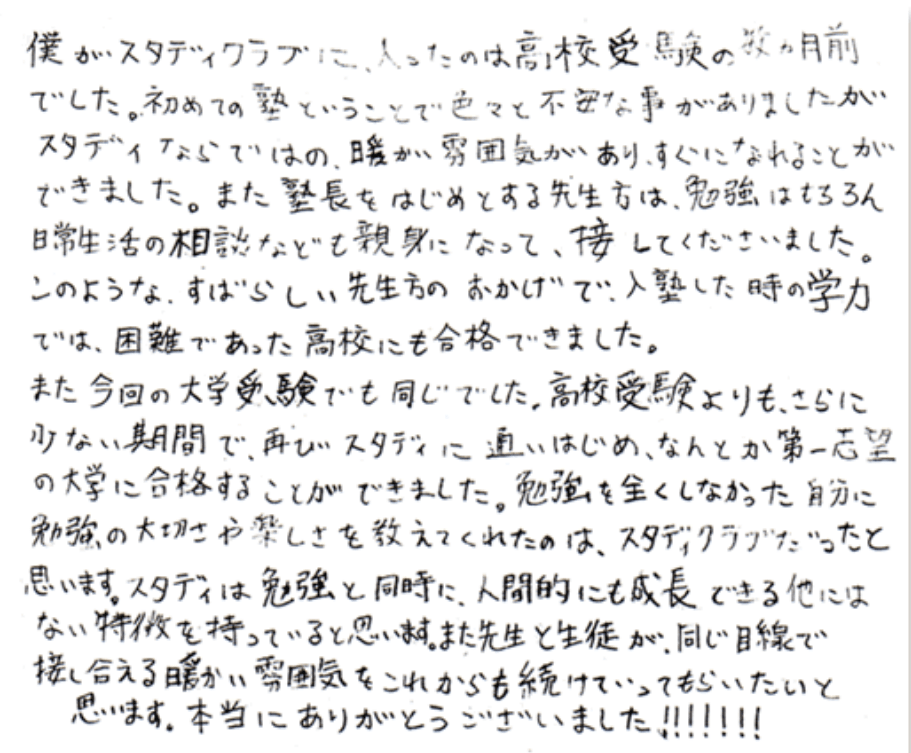 僕がスタディクラブに、入ったのは高校受験の数ヵ月前
でした。初めての塾ということで色々と不安な事がありましたが
スタディならではの、暖かい雰囲気があり、すぐになれることが
できました。また塾長をはじめとする先生方は、勉強はもちろん
日常生活の相談なども親身になって、接してくださいました。
このような、すばらしい先生方のおかげで、入塾した時の学力
では、困難であった高校にも合格できました。
また今回の大学受験でも同じでした。高校受験よりも、さらに
少ない期間で、再びスタディに通いはじめ、なんとか第一志望
の大学に合格することができました。勉強を全くしなかった自分に
勉強の大切さや楽しさを教えてくれたのは、スタディクラブだったと
思います。スタディは勉強と同時に、人間的にも成長できる他には
ない特徴を持っていると思います。また先生と生徒が、同じ目線で
接し合える暖かい雰囲気をこれからも続けていってもらいたいと
思います。本当にありがとうございました!!!!!!!